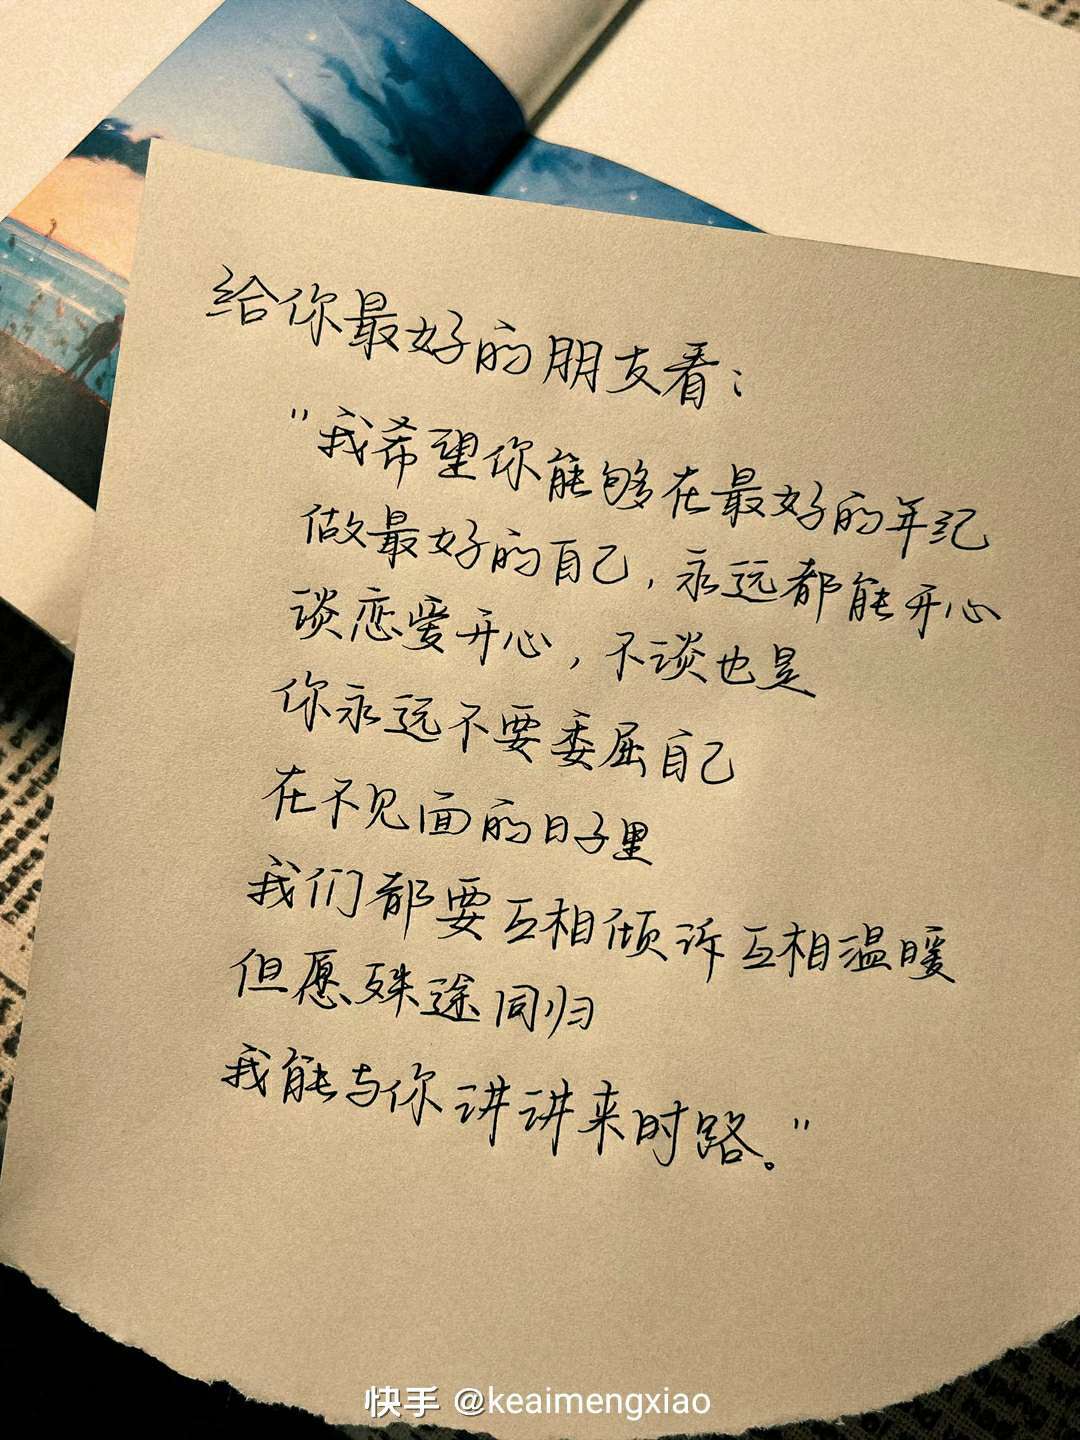 给你最好的朋友看：
"我希望你能够在最好的年纪
做最好的自己，永远都能开心
谈恋爱开心，不谈也是
你永远不要委屈自己
在不见面的日子里
我们都要互相倾诉互相温暖
但愿殊途同归
我能与你讲讲来时路。"
快手 @keaimengxiao